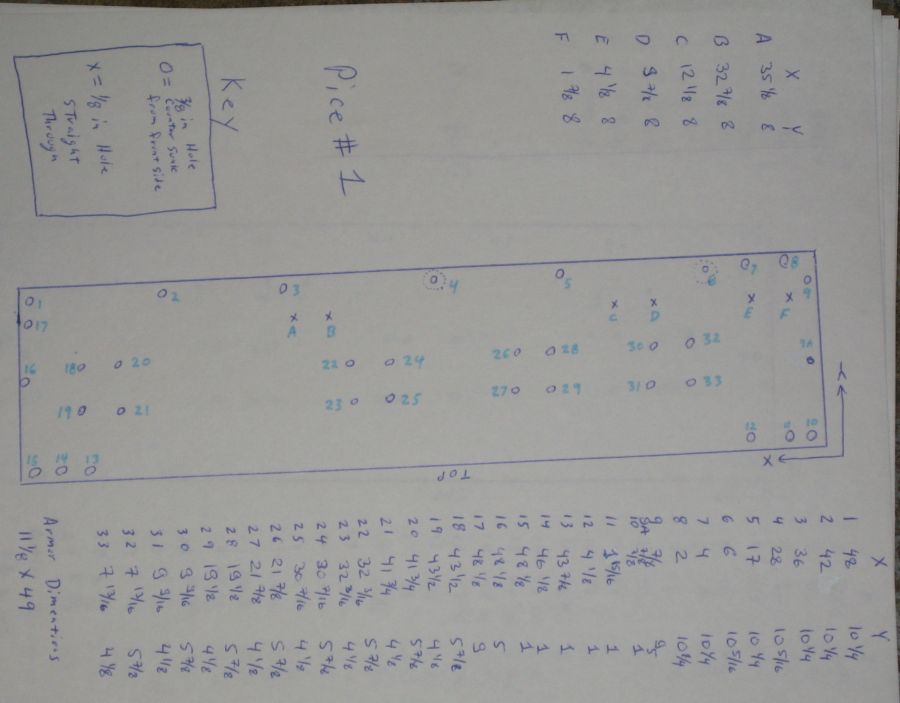 X Y
A 35 1/8 8
B 32 7/8 8
C 12 1/8 8
D 9 7/8 8
E 4 1/8 8
F 1 7/8 8
Pice # 1
Key
O = 3/8 in Hole
Counter Sunk
from front side
X = 1/8 in Hole
STraight
Through
8
7
6
5
4
3
2
1
9
F
E
D
C
B
A
17
9A
32
30
28
26
24
22
20
18
16
33
31
29
27
25
23
21
19
10
11
12
13
14
15
Y
X
TOP
X Y
1 48 10 1/4
2 42 10 1/4
3 36 10 1/4
4 28 10 5/16
5 17 10 1/4
6 6 10 5/16
7 4 10 1/4
8 2 10 1/4
9 7/8 9
9A 7/8 5
10 7/8 1
11 1 15/16 1
12 4 1/8 1
13 1
14 46 1/8 1
15 48 1/8 1
16 48 1/8 5
17 48 1/8 9
18 43 1/2 5 7/8
19 43 1/2 4 1/8
20 41 3/4 5 7/8
21 41 3/4 4 1/8
22 32 3/16 5 7/8
23 32 3/16 4 1/8
24 30 7/16 5 7/8
25 30 7/16 4 1/8
26 21 7/8 5 7/8
27 21 7/8 4 1/8
28 19 1/8 5 7/8
29 19 1/8 4 1/8
30 9 9/16 5 7/8
31 9 9/16 4 1/8
32 7 13/16 5 7/8
33 7 13/16 4 1/8
Armor Dimentions
11 1/8 X 49